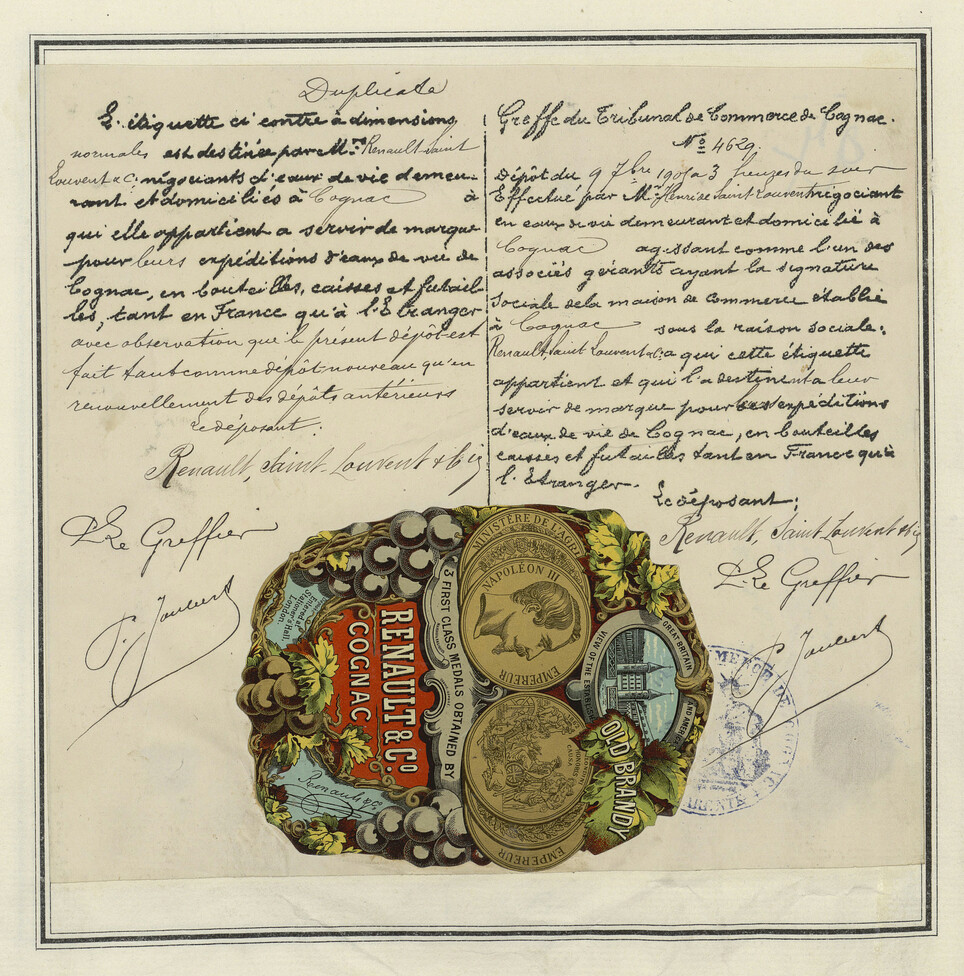 Duplicata
L'étiquette ci contre à dimensions
normales est destinée par Mrs Renault Saint
Louvent & Cie négociants d'eaux de vie demeu-
rant et domiciliés à Cognac à
qui elle appartient a servir de marque
pour leurs expéditions d'eaux de vie de
Cognac, en bouteilles, caisses et futail-
les, tant en France qu'à l'Etranger
avec observation que le présent dépôt est
fait tant comme dépôt nouveau qu'en
renouvellement des dépôts antérieurs
Le déposant:
Renault, Saint-Louvent & Cie
Le Greffier
Joubert
Greffe du Tribunal de Commerce de Cognac.
No 4629.
Dépôt du 9 7bre à 3 heures du soir
Effectué par Mr Henri de Saint Louvent négociant
en eaux de vie demeurant et domicilié à
Cognac agissant comme l'un des
associés gérants ayant la signature
sociale de la maison de commerce établie
à Cognac sous la raison sociale:
Renault, Saint Louvent & Cie a qui cette étiquette
appartient et qui l'a destinent a leur
servir de marque pour ses expéditions
d'eaux de vie de Cognac, en bouteilles
caisses et futailles tant en France qu'à
l'Etranger.
Le déposant:
Renault, Saint Louvent & Cie
Le Greffier
Joubert
MINISTÈRE DE L'AGRI
NAPOLÉON III
EMPEREUR
EMPEREUR
3 FIRST CLASS MEDALS OBTAINED BY
RENAULT & Co
COGNAC
Entered at
Stationer's Hall,
London.
Renault & Co
GREAT BRITAIN
AND AMERI
VIEW OF THE ES
OLD BRANDY